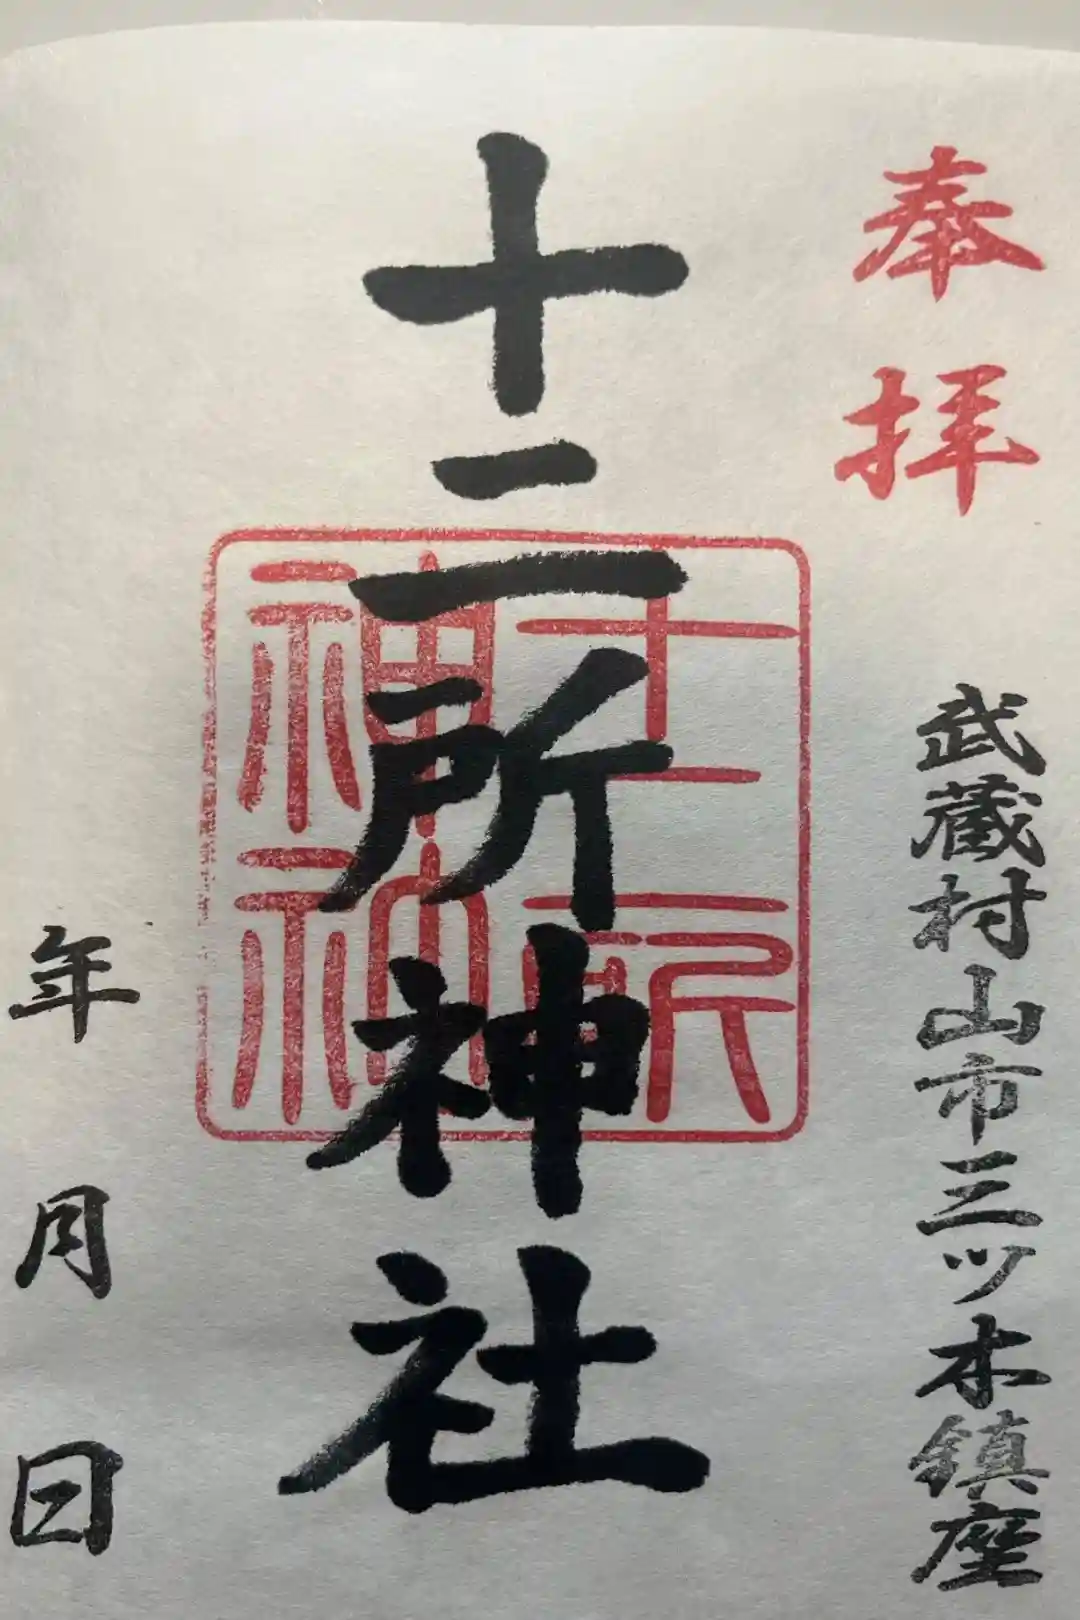 奉拝
武蔵村山市三ツ木鎮座
十二所神社
十二所神社
年　月　日